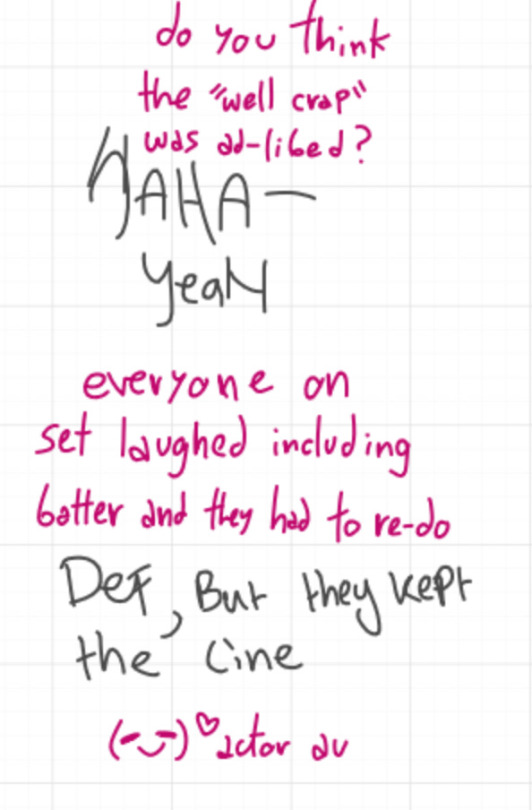 do you think
the "well crap"
was ad-libed?
HAHA—
yeaH
everyone on
set laughed including
batter and they had to re-do
DeF, But they kept
the line
(-‿-)♡actor au